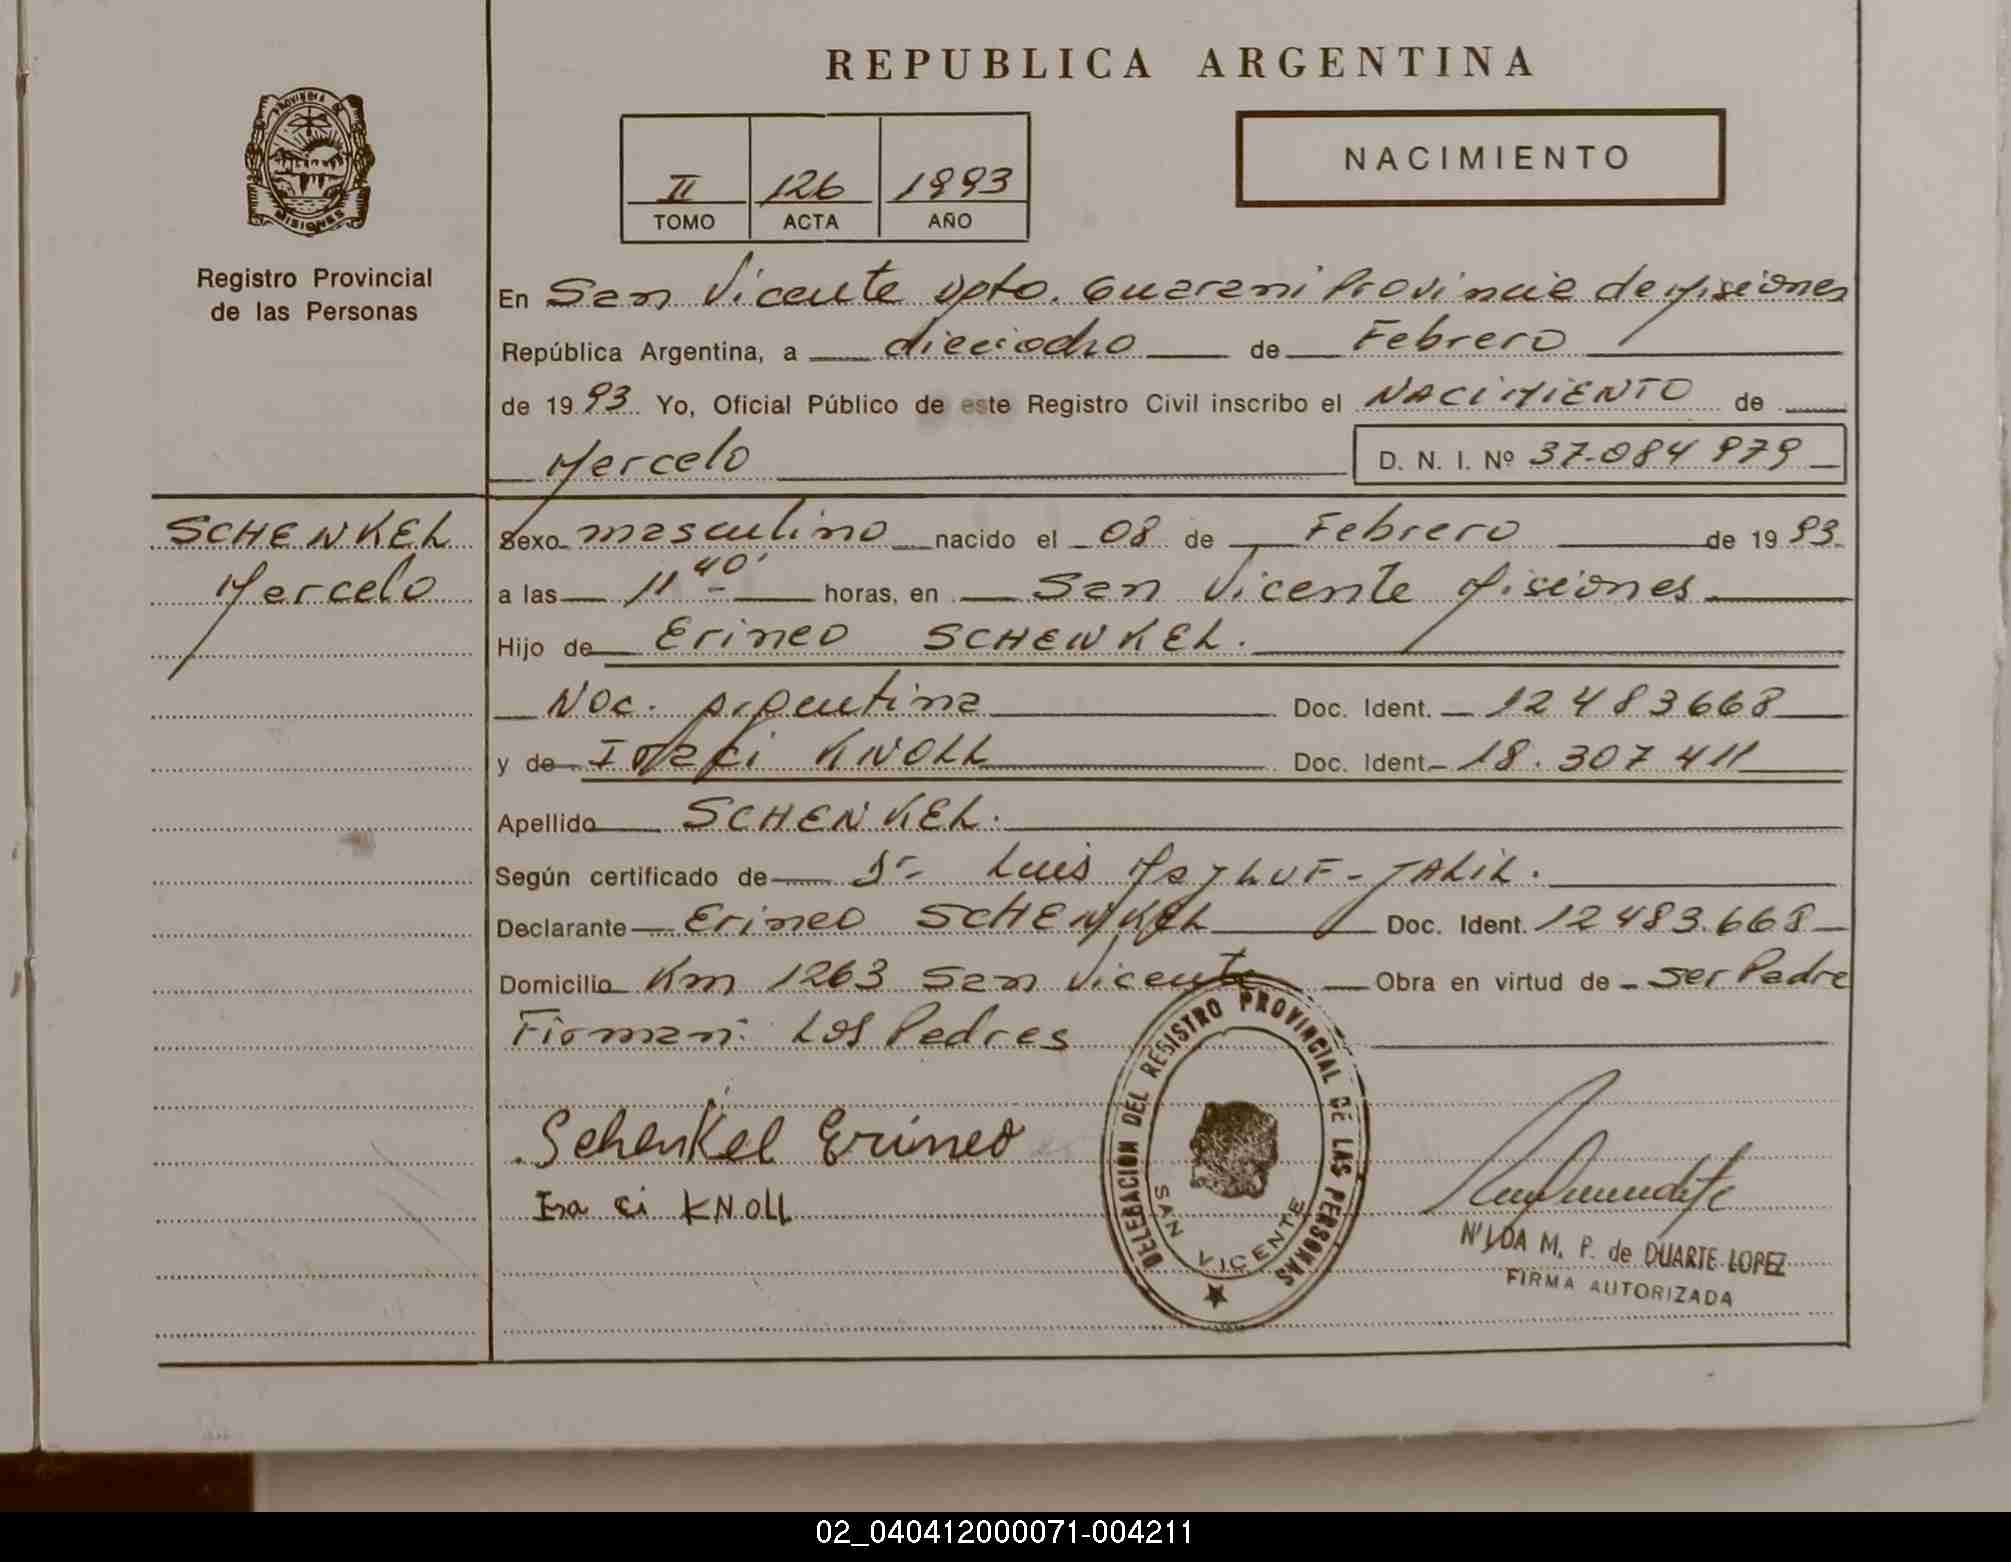 REPUBLICA ARGENTINA
PROVINCIA DE
MISIONES
Registro Provincial
de las Personas
II 126 1993
TOMO ACTA AÑO
NACIMIENTO
En San Vicente Dpto. Guarani Provincia de Misiones
República Argentina, a dieciocho de Febrero
de 1993 Yo, Oficial Público de este Registro Civil inscribo el NACIMIENTO de
Marcelo D. N. I. Nº 37.084 979
SCHENKEL
Marcelo
Sexo masculino nacido el 08 de Febrero de 1993.
a las 11 40' horas, en San Vicente Misiones
Hijo de Erineo SCHENKEL.
Nac. Argentina Doc. Ident. 12 483668
y de KNOLL Doc. Ident. 18.307 411
Apellido SCHENKEL.
Según certificado de Dr Luis JALIL.
Declarante Erineo SCHENKEL Doc. Ident. 12 483.668
Domicilio Km 1263 San Vicente Obra en virtud de ser Padre
Firman: Los Padres
Schenkel Erineo
Ira ci KNOLL
DELEGACION DEL REGISTRO PROVINCIAL DE LAS PERSONAS
SAN VICENTE
NILDA M. P. de DUARTE LOPEZ
FIRMA AUTORIZADA
02_040412000071-004211